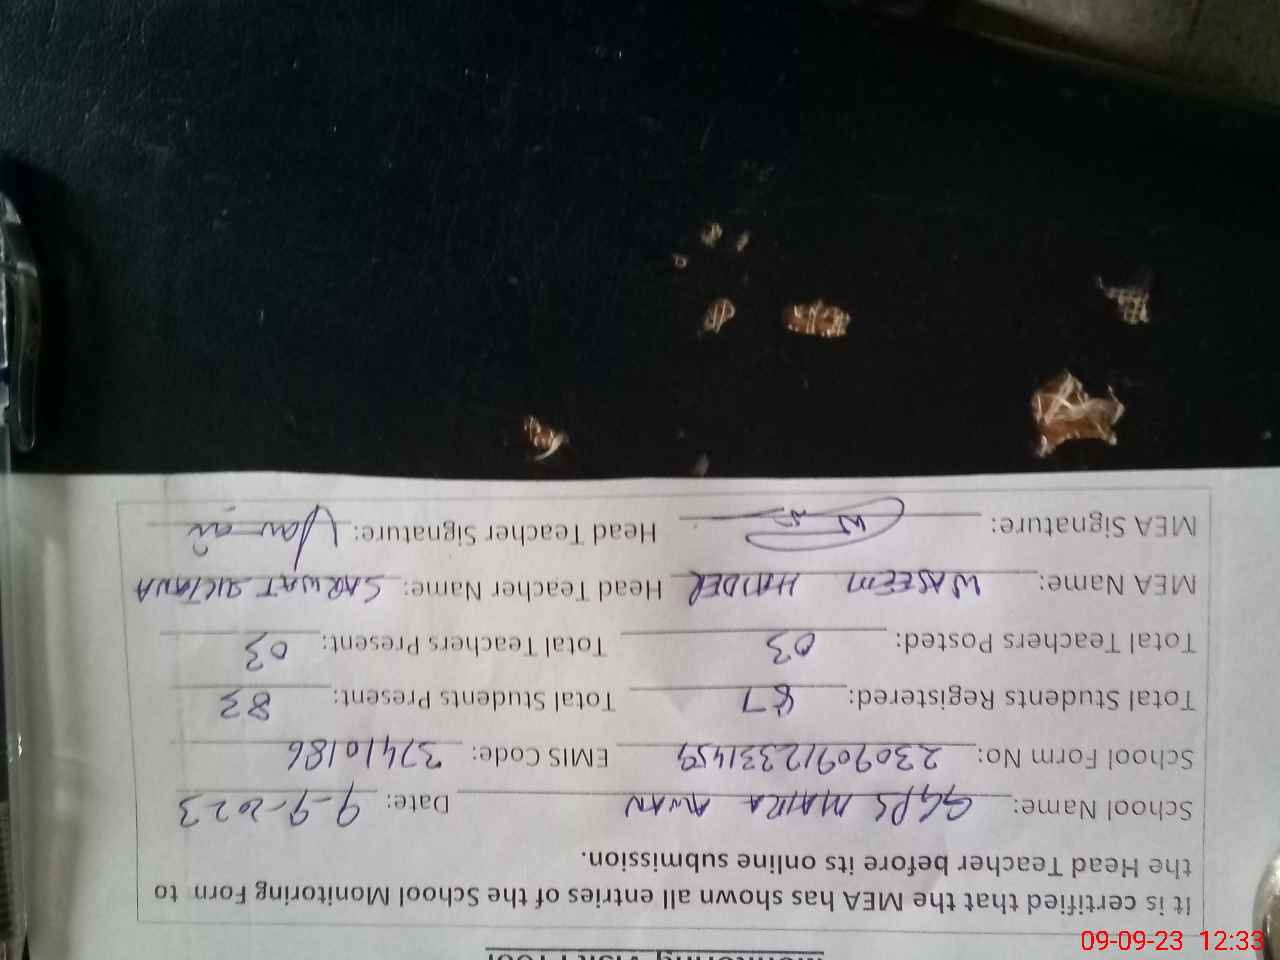 Monitoring Visit Proof
It is certified that the MEA has shown all entries of the School Monitoring Form to
the Head Teacher before its online submission.
School Name: GGPS MAIRA AWAN Date: 9-9-2023
School Form No: 23090912331459 EMIS Code: 37410186
Total Students Registered: 87 Total Students Present: 83
Total Teachers Posted: 03 Total Teachers Present: 03
MEA Name: WASEEM HAIDER Head Teacher Name: SARWAT SULTANA
MEA Signature: Head Teacher Signature:
09-09-23 12:33